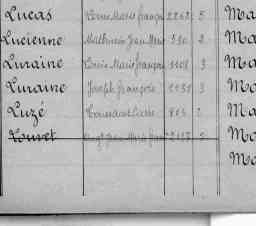 Lucas Louis Marie françois 2262 5 Ma
Lucienne Mathurin Jean Marie 330 2 Ma
Luraine Louis Marie françois 1108 3 Ma
Luraine Joseph françois 1131 3 Ma
Luzé Toussaint 2 Ma
Louvet Jean Marie Ma
Ma